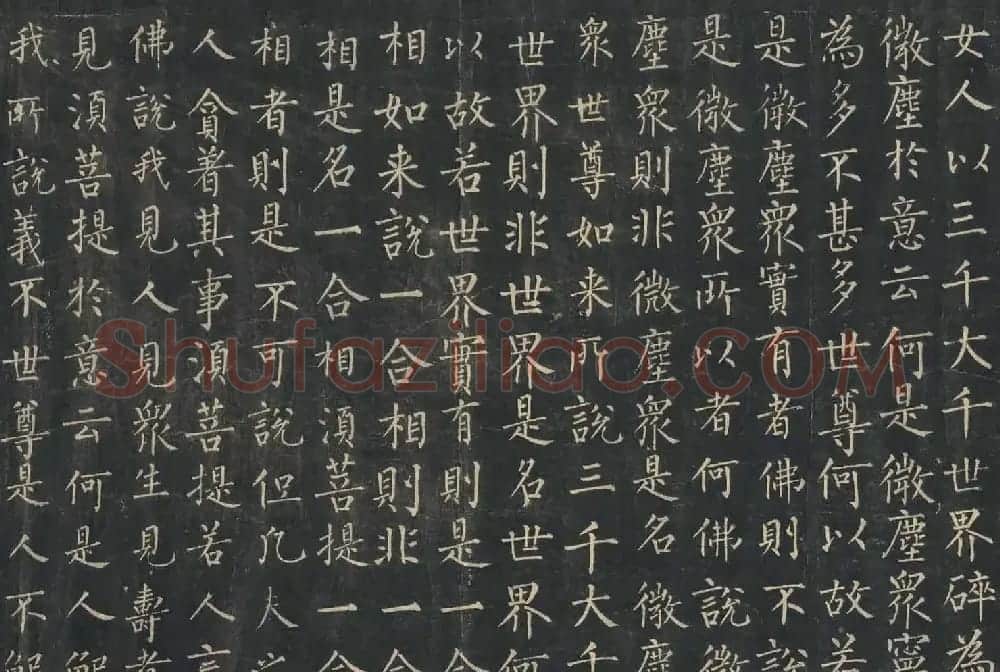 女人以三千大千世界碎為
微塵於意云何是微塵眾寧
為多不甚多世尊何以故若
是微塵眾實有者佛則不說
是微塵眾所以者何佛說微
塵眾則非微塵眾是名微塵
眾世尊如来所說三千大千
世界則非世界是名世界何
以故若世界實有則是一合
相如来說一合相則非一合
相是名一合相須菩提一合
相者則是不可說但凡夫之
人貪著其事須菩提若人言
佛說我見人見眾生見壽者
見須菩提於意云何是人解
我所說義不世尊是人不解
Shufaziliao.COM